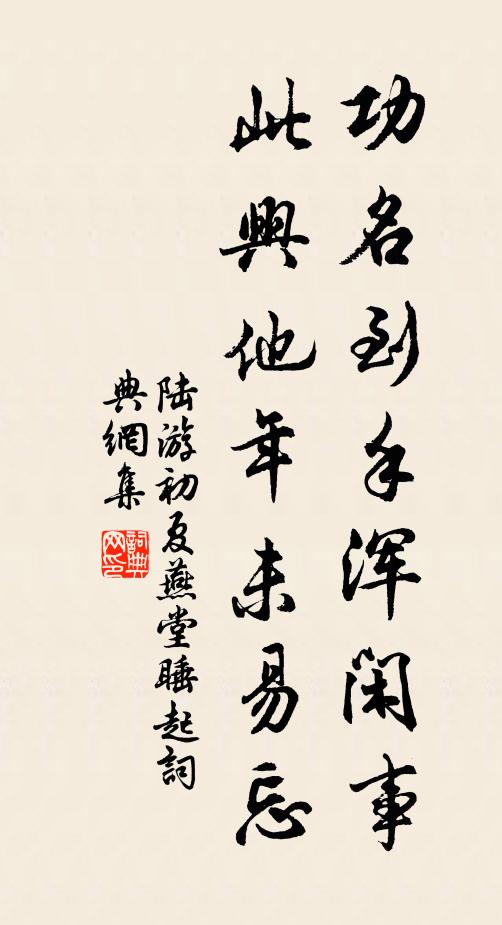 功名到手浑闲事
此興他年未易忘
陆游初夏燕堂睡起詞
典網集
詞典網印